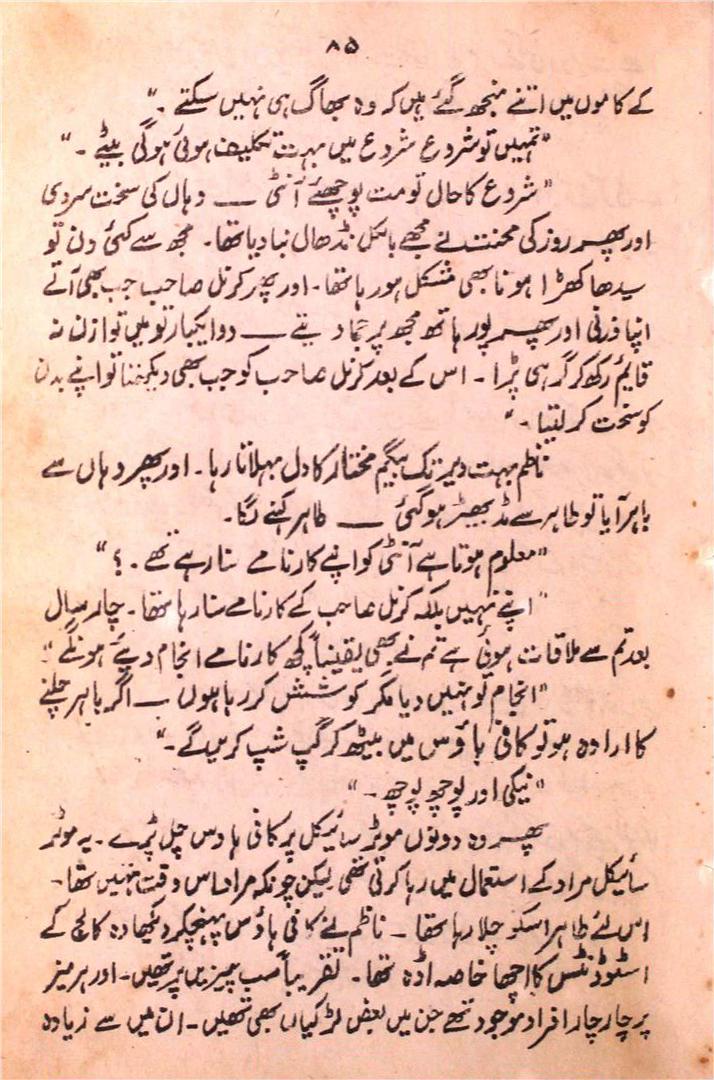 ۸۵
کے کاموں میں اتنے منجھ گئے ہیں کہ وہ بھاگ ہی نہیں سکتے ۔"
"تمہیں تو شروع شروع میں بہت تکلیف ہوئی ہوگی بیٹے ۔"
"شروع کا حال تو مت پوچھئے آنٹی — وہاں کی سخت سردی
اور پھر روز کی محنت نے مجھے بالکل نڈھال بنا دیا تھا۔ مجھ سے کئی دن تو
سیدھا کھڑا ہونا بھی مشکل ہو رہا تھا۔ اور پھر کرنل صاحب جب بھی آتے
اپنا وزنی اور بھرپور ہاتھ مجھ پر جما دیتے — دو ایکبار تو میں توازن نہ
قایم رکھ کر گر ہی پڑا ۔ اس کے بعد کرنل صاحب کو جب بھی دیکھتا تو اپنے بدن
کو سخت کر لیتا ۔"
ناظم بہت دیر تک بیگم مختار کا دل بہلاتا رہا ۔ اور پھر وہاں سے
باہر آیا تو طاہر سے مڈبھیڑ ہوگئی — طاہر کہنے لگا۔
"معلوم ہوتا ہے آنٹی کو اپنے کارنامے سنا رہے تھے ۔؟"
"اپنے نہیں بلکہ کرنل صاحب کے کارنامے سنا رہا تھا ۔ چار سال
بعد تم سے ملاقات ہوئی ہے تم نے بھی یقیناً کچھ کارنامے انجام دیئے ہونگے"
"انجام تو نہیں دیا مگر کوشش کر رہا ہوں — اگر باہر چلنے
کا ارادہ ہو تو کافی ہاؤس میں بیٹھ کر گپ شپ کریں گے۔"
"نیکی اور پوچھ پوچھ ۔"
پھر وہ دونوں موٹر سائیکل پر کافی ہاوس چل پڑے ۔ یہ موٹر
سائیکل مراد کے استعمال میں رہا کرتی تھی لیکن چونکہ مراد اس وقت نہیں تھا ۔
اس لئے طاہر اسکو چلا رہا تھا ۔ ناظم نے کافی ہاؤس پہنچکر دیکھا وہ کالج کے
اسٹوڈنٹس کا اچھا خاصہ اڈہ تھا ۔ تقریباً سب میزیں پر تھیں۔ اور ہر میز
پر چار چار افراد موجود تھے جن میں بعض لڑکیاں بھی تھیں ۔ ان میں سے زیادہ